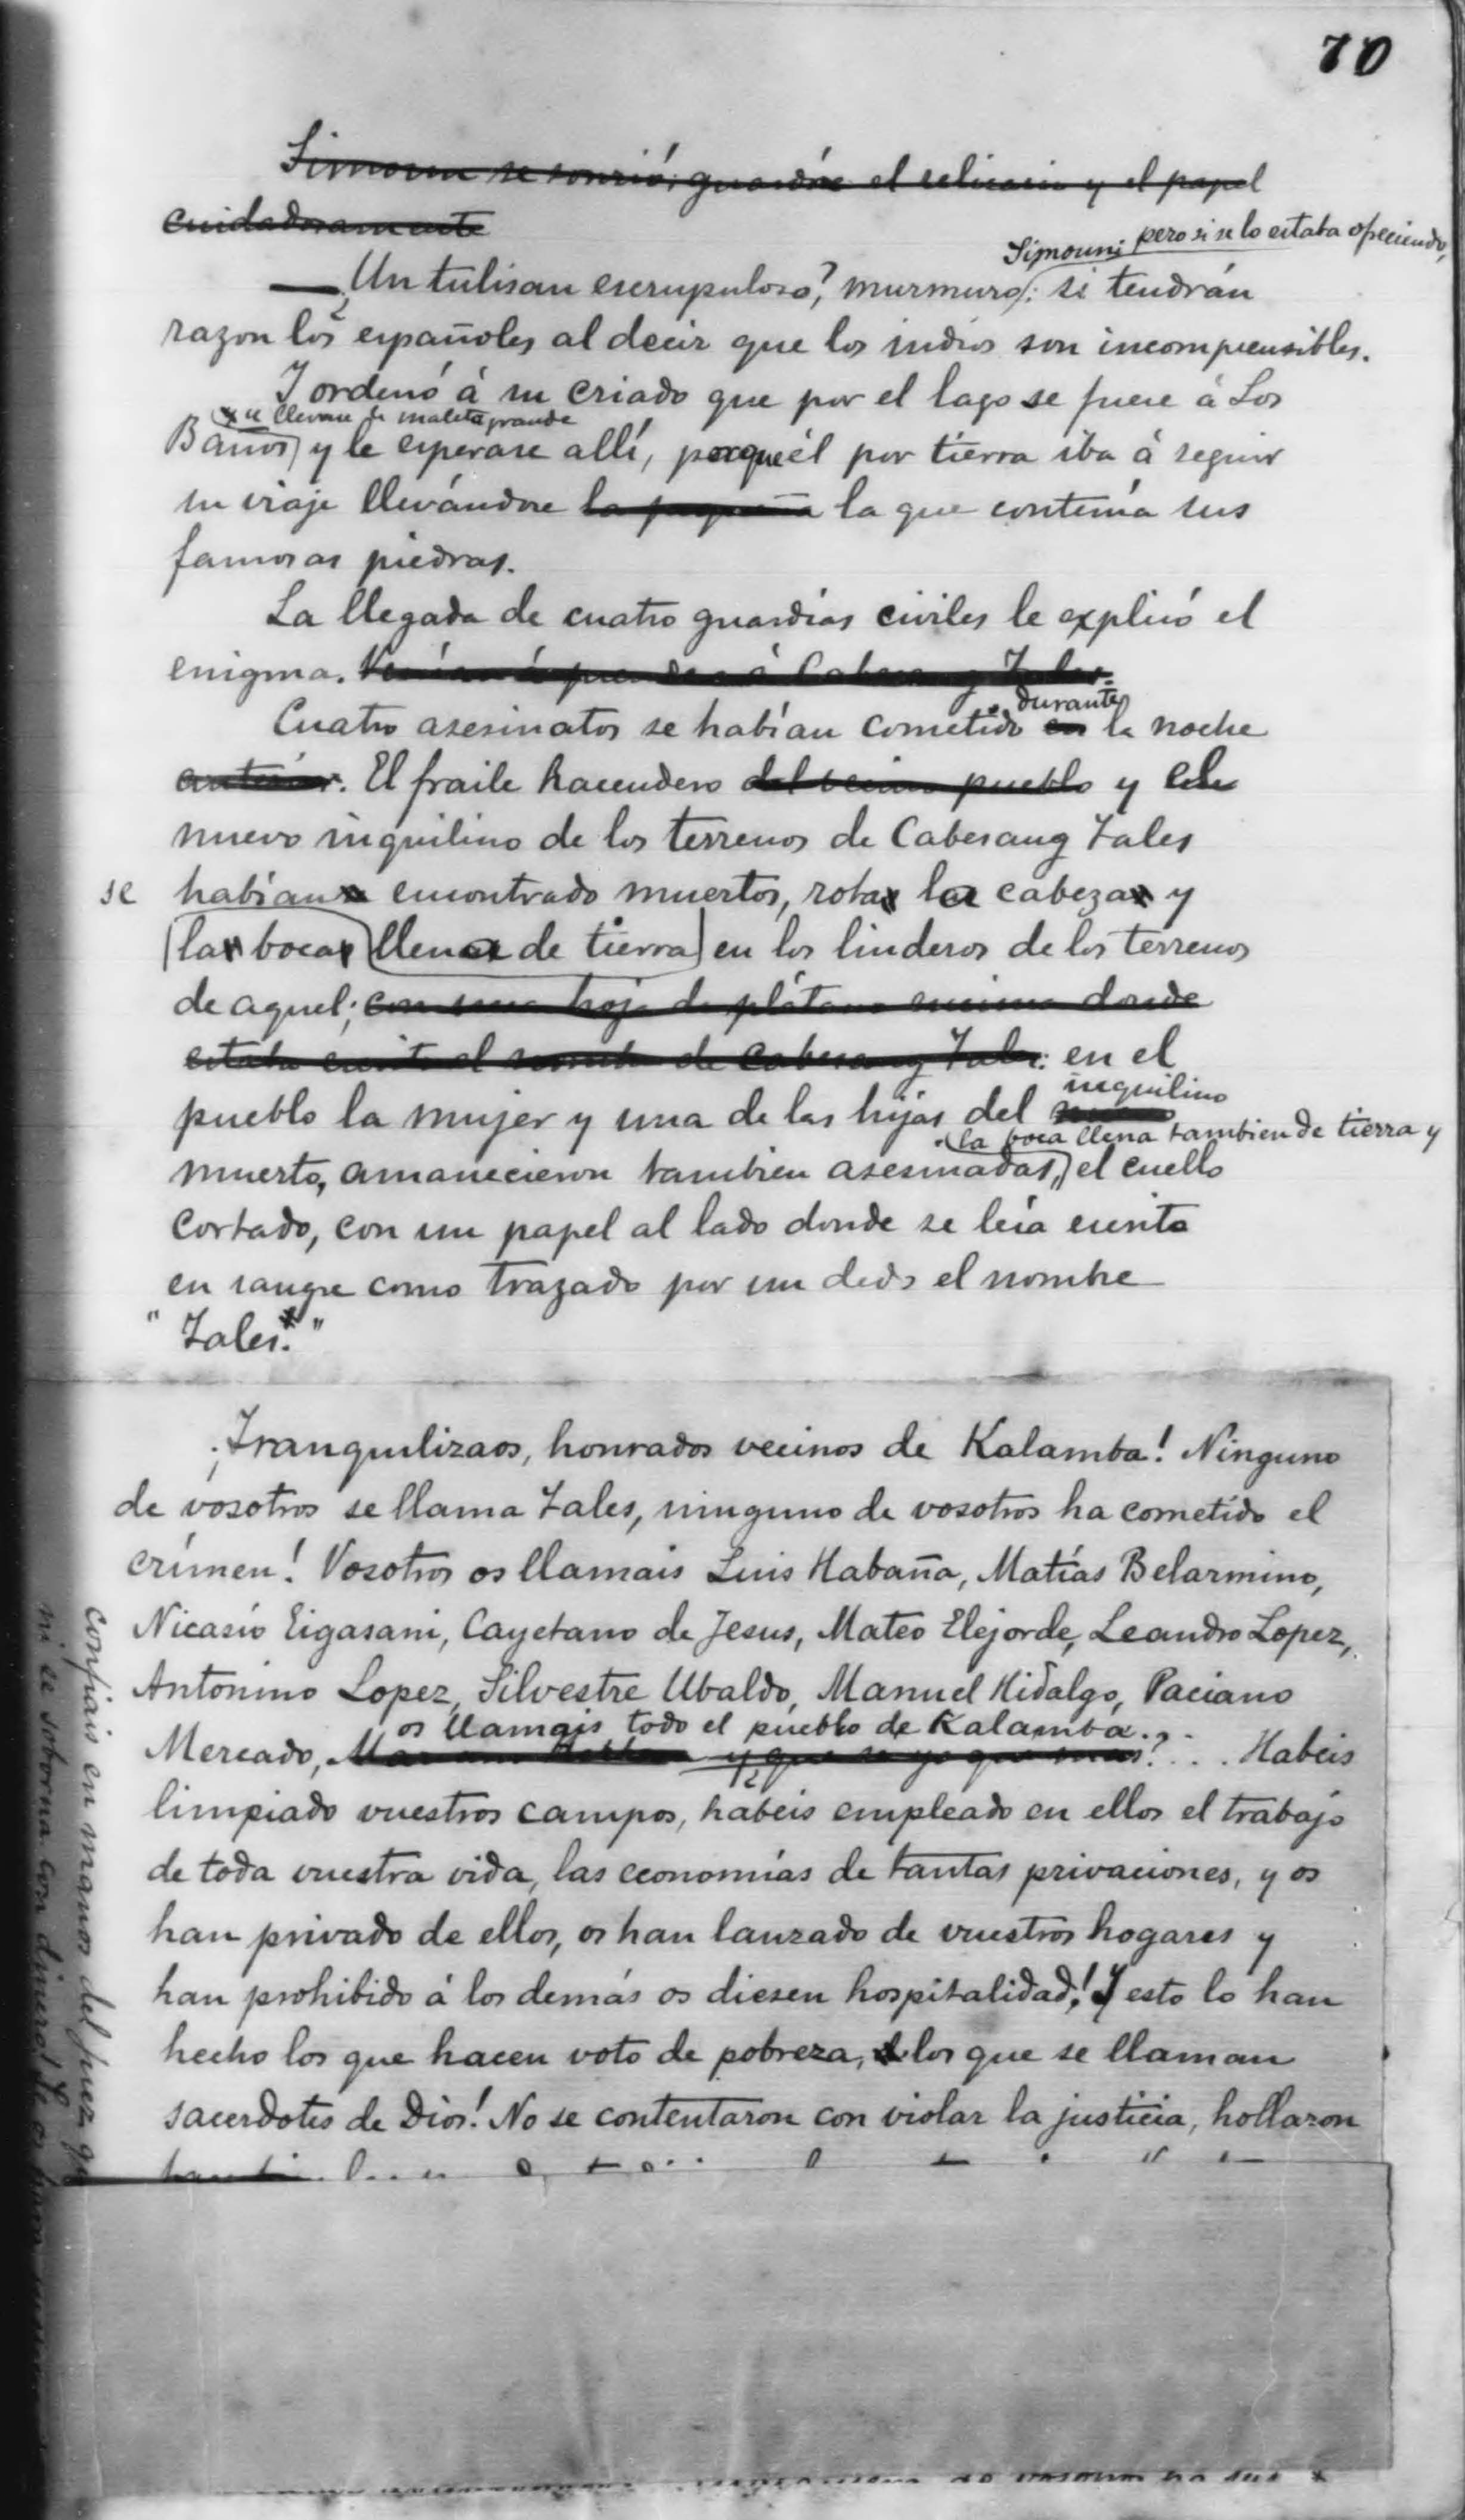 70
Simoun se sonrió; guardóse el relicario y el papel
cuidadosamente
Simoun; pero si se lo estaba ofreciendo,
— ¿Un tulisan escrupuloso?, murmuró: si tendrán
razon los españoles al decir que los indios son incomprensibles.
Y ordenó á su criado que por el lago se fuese á Los
se llevase la maleta grande
Baños y le esperase allí, porque él por tierra iba á seguir
su viaje llevándose la pequeña la que contenía sus
famosas piedras.
La llegada de cuatro guardias civiles le explicó el
enigma. Venían á prender á Cabesang Tales.
durante
Cuatro asesinatos se habían cometido en la noche
anterior. El fraile hacendero del vecino pueblo y el
nuevo inquilino de los terrenos de Cabesang Tales
se habían encontrado muertos, rota la cabeza y
la boca llena de tierra en los linderos de los terrenos
de aquel; con una hoja de plátano encima donde
estaba escrito el nombre de Cabesang Tales: en el
inquilino
pueblo la mujer y una de las hijas del
la boca llena tambien de tierra y
muerto, amanecieron tambien asesinadas, el cuello
cortado, con un papel al lado donde se leía escrito
en sangre como trazado por un dedo el nombre
"Tales."
¡Tranquilizaos, honrados vecinos de Kalamba! Ninguno
de vosotros se llama Tales, ninguno de vosotros ha cometido el
crímen! Vosotros os llamais Luis Habaña, Matías Belarmino,
Nicasio Eigasani, Cayetano de Jesus, Mateo Elejorde, Leandro Lopez,
Antonino Lopez, Silvestre Ubaldo, Manuel Hidalgo, Paciano
os llamais todo el pueblo de Kalamba.
Mercado, y que se yo que mas? . . . Habeis
limpiado vuestros campos, habeis empleado en ellos el trabajo
de toda vuestra vida, las economías de tantas privaciones, y os
han privado de ellos, os han lanzado de vuestros hogares y
han prohibido á los demás os diesen hospitalidad! Y esto lo han
hecho los que hacen voto de pobreza, los que se llaman
sacerdotes de Dios! No se contentaron con violar la justicia, hollaron
confiais en manos del juez
ni se soborna con dinero!